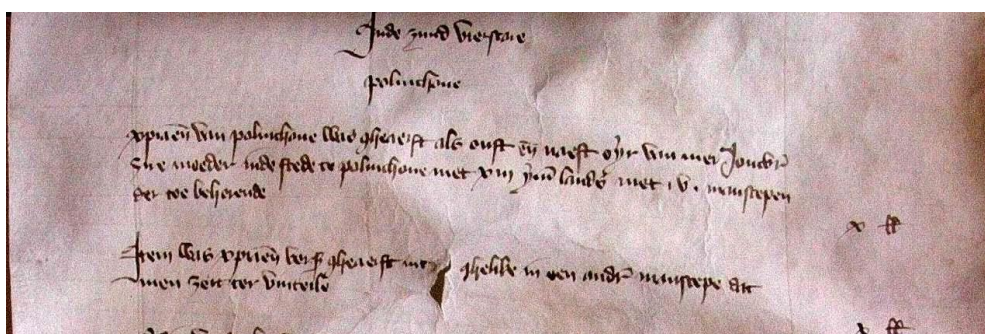 Inde zuud vierscare
polinchove
xpriaen van polinchove was gheerft als outst en naest oyr van mer Joncvr
zire moeder inde stede te polinchove met xiii ymet lands met i v mansscepen
der toe behorende
x lb
Item was xpriaen vors gheerft int ghelike in een andr manscepe dat
men zeit ter
x lb